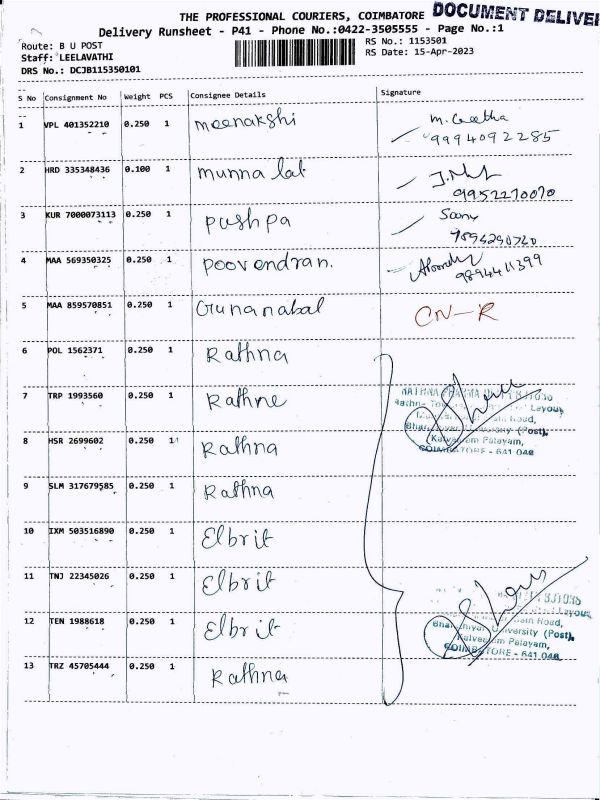 THE PROFESSIONAL COURIERS, COIMBATORE DOCUMENT DELIVE
Delivery Runsheet - P41 - Phone No.:0422-3505555 - Page No.:1
Route: B U POST RS No.: 1153501
Staff: LEELAVATHI RS Date: 15-Apr-2023
DRS No.: DCJB115350101
S No Consignment No Weight PCS Consignee Details Signature
1 VPL 401352210 0.250 1 meenakshi M. Geetha
9994092285
2 HRD 335348436 0.100 1 munna lal
9952270070
3 KUR 7000073113 0.250 1 pushpa
4 MAA 569350325 0.250 1 poovendran.
9894411399
5 MAA 859570851 0.250 1 Gunanabal CN-R
6 POL 1562371 0.250 1 Rathna
7 TRP 1993560 0.250 1 Rathne
8 HSR 2699602 0.250 1 Rathna
Kalveeram Palayam,
COIMBATORE - 641 046
9 SLM 317679585 0.250 1 Rathna
10 IXM 503516890 0.250 1 Elbrit
11 TNJ 22345026 0.250 1 Elbrit
12 TEN 1988618 0.250 1 Elbrit
Bharathiyar University (Post),
Kalveeram Palayam,
COIMBATORE - 641 046
13 TRZ 45705444 0.250 1 Rathna